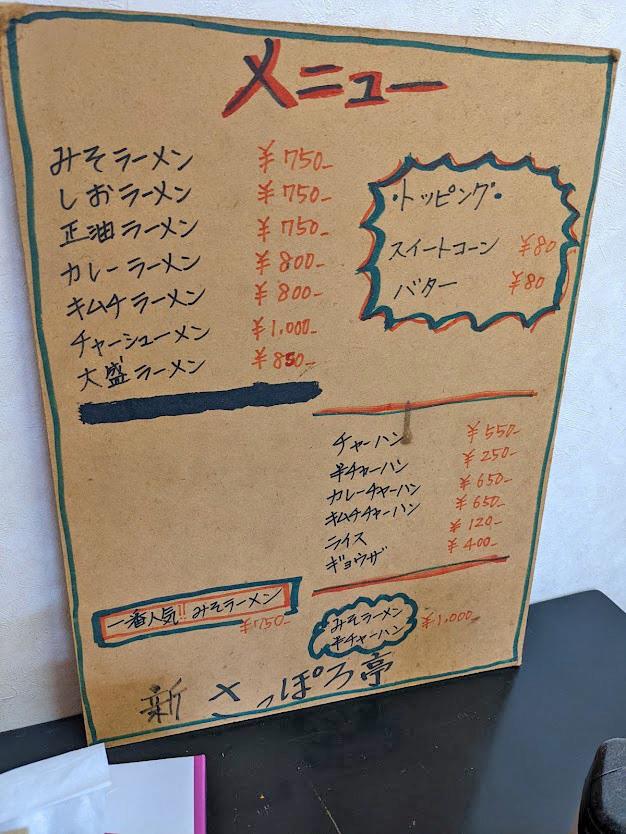 メニュー
みそラーメン ¥750-
しおラーメン ¥750-
正油ラーメン ¥750-
カレーラーメン ¥800-
キムチラーメン ¥800-
チャーシューメン ¥1,000-
大盛ラーメン ¥850-
・トッピング・
スイートコーン ¥80
バター ¥80
チャーハン ¥550-
半チャーハン ¥250-
カレーチャーハン ¥650-
キムチチャーハン ¥650-
ライス ¥120-
ギョウザ ¥400-
一番人気!! みそラーメン
¥750-
みそラーメン
半チャーハン
¥1,000-
新 さっぽろ亭